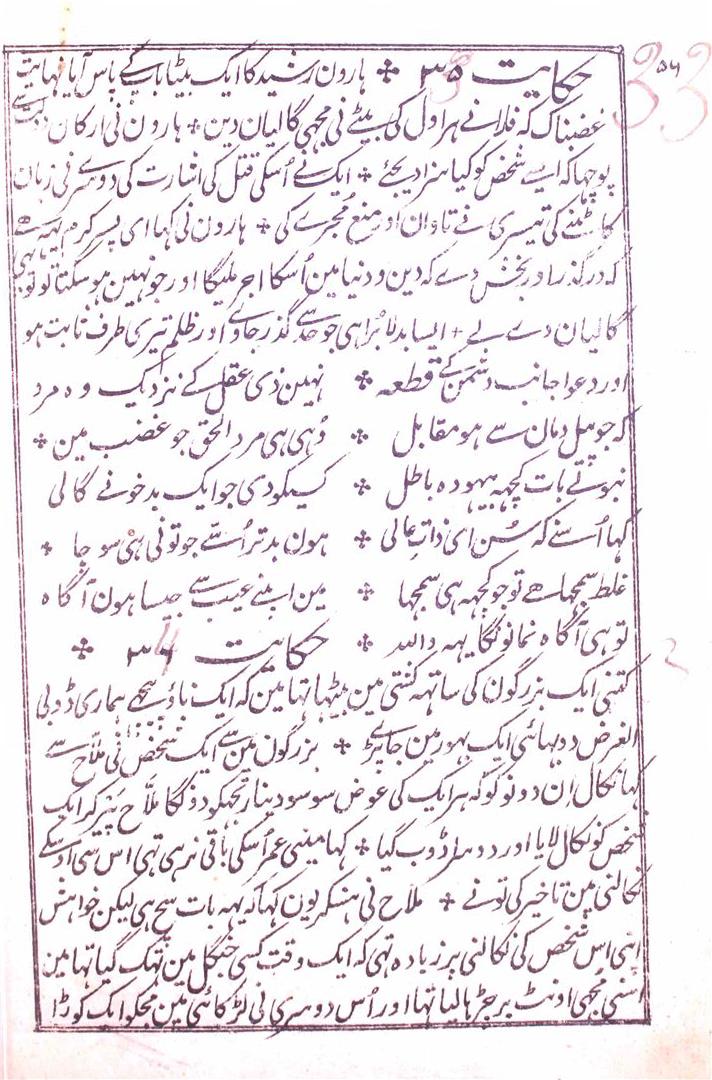 ۵۶
حکایت ۳۵ ❖ ہارون رشید کا ایک بیٹا باپ کے پاس آیا نہایت
غضبناک کہ فلانے ہراول کی بیٹے نی مجھی گالیان دین ❖ ہارون نی ارکان دولت سے
پوچھا کہ ایسے شخص کو کیا سزا دیجئے ❖ ایک نے اُسکی قتل کی اشارت کی دوسرے نی زبان
کاٹنے کی تیسری نے تاوان اور منع مجرے کی ❖ ہارون نی کہا ای پسر کرم یہہ ہے
کہ درگذر اور بخش دے کہ دین و دنیا مین اُسکا اجر ملیگا اور جو نہین ہو سکتا تو تو بہی
گالیان دے لے + ایسا بدلا بُرا ہی جو حد سے گذر جاوے اور ظلم تیری طرف ثابت ہو
اور دعوا جانب دشمن کے قطعہ ❖ نہین ذی عقل کے نزدیک وہ مرد
کہ جو پیل دمان سے ہو مقابل ❖ وُہی ہی مرد الحق جو غضب مین ❖
نبوئے بات کچہہ بیہودہ باطل ❖ کسیکو دی جو ایک بدخو نے گالی
کہا اُسنے کہ سُن ای ذات عالی ❖ ہون بدتر اُسّے جو تو نی ہی سوچا ❖
غلط سمجہا ہے تو جو کچہہ ہی سمجہا ❖ مین اپنے عیب سے جیسا ہون آگاہ
تو ہی آگاہ نمانونگا یہہ واللہ ❖ حکایت ۳۶ ❖
کتنی ایک بزرگون کی ساتہہ کشتی مین بیٹہا تہا مین کہ ایک ناؤ پیچہے ہماری ڈوبی
الغرض دو بہائی ایک بہور مین جا پڑے ❖ بزرگون مین سے ایک شخص نی ملّاح سے
کہا نکال اِن دونو کو کہ ہر ایک کی عوض سو سو دینار تجہکو دونگا ملّاح پَیر کر ایک
شخص کو نکال لایا اور دوسرا ڈوب گیا ❖ کہا مینی عمر اُسکی باقی نرہی تہی اس سی اوسکے
نکالنی مین تاخیر کی تو نے ❖ ملّاح نی ہنسکر یون کہا کہ یہہ بات سچ ہی لیکن خواہش
اپنی اس شخص کی نکالنی پر زیادہ تہی کہ ایک وقت کسی جنگل مین تہک گیا تہا مین
اسنی مجہی اونٹ پر چڑہا لیا تہا اور اُس دوسری نی لڑکائی مین مجکو ایک کوڑا